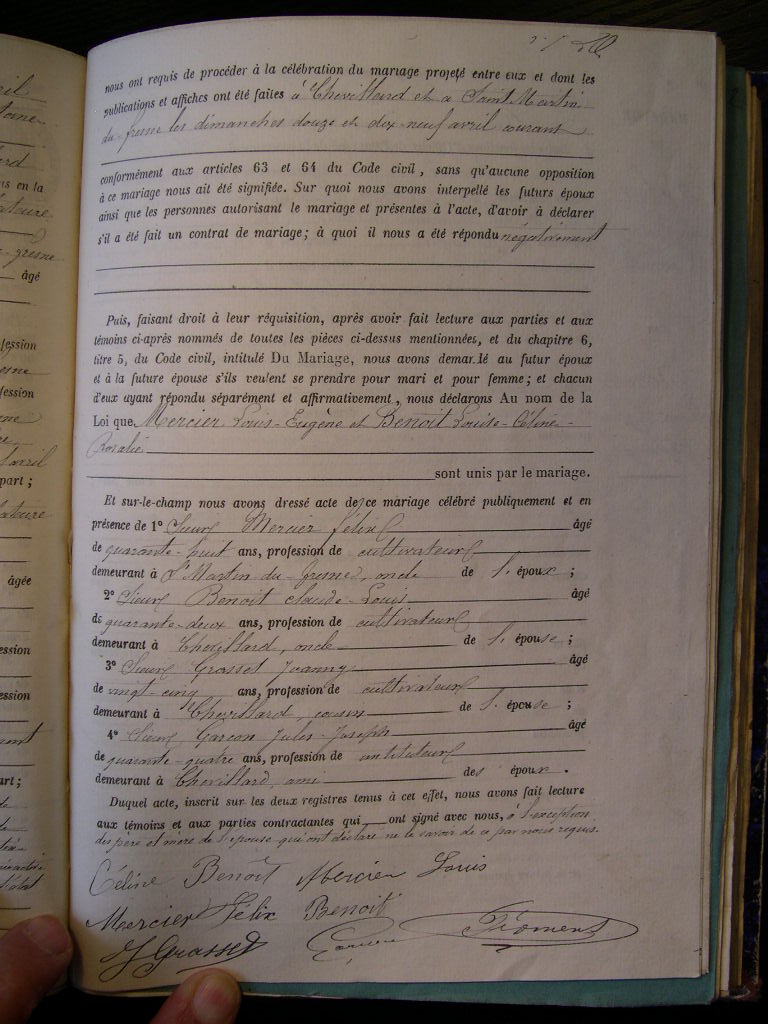 nous ont requis de procéder à la célébration du mariage projeté entre eux et dont les
publications et affiches ont été faites à Chevillard et à Saint Martin
du fresne les dimanches douze et dix-neuf avril courant
conformément aux articles 63 et 64 du Code civil, sans qu'aucune opposition
à ce mariage nous ait été signifiée. Sur quoi nous avons interpellé les futurs époux
ainsi que les personnes autorisant le mariage et présentes à l'acte, d'avoir à déclarer
s'il a été fait un contrat de mariage; à quoi il nous a été répondu négativement
Puis, faisant droit à leur réquisition, après avoir fait lecture aux parties et aux
témoins ci-après nommés de toutes les pièces ci-dessus mentionnées, et du chapitre 6,
titre 5, du Code civil, intitulé Du Mariage, nous avons demandé au futur époux
et à la future épouse s'ils veulent se prendre pour mari et pour femme; et chacun
d'eux ayant répondu séparément et affirmativement, nous déclarons Au nom de la
Loi que Mercier Louis-Eugène et Benoit Louise-Céline-
Rosalie
sont unis par le mariage.
Et sur-le-champ nous avons dressé acte de ce mariage célébré publiquement et en
présence de 1° Sieur Mercier félix âgé
de quarante-huit ans, profession de cultivateur
demeurant à St Martin du fresne, oncle de l' époux;
2° Sieur Benoit claude-Louis âgé
de quarante-deux ans, profession de cultivateur
demeurant à Chevillard, oncle de l' épouse;
3° Sieur Grosset Joanny âgé
de vingt-cinq ans, profession de cultivateur
demeurant à Chevillard, cousin de l' épouse;
4° Sieur Garcon Jules-Joseph âgé
de quarante-quatre ans, profession de instituteur
demeurant à Chevillard, ami des époux.
Duquel acte, inscrit sur les deux registres tenus à cet effet, nous avons fait lecture
aux témoins et aux parties contractantes qui ont signé avec nous, à l'exception
des père et mère de l'épouse qui ont déclaré ne le savoir de ce par nous requis.
Céline Benoît Mercier Louis
Mercier Félix Benoit
J Grosset Fromens